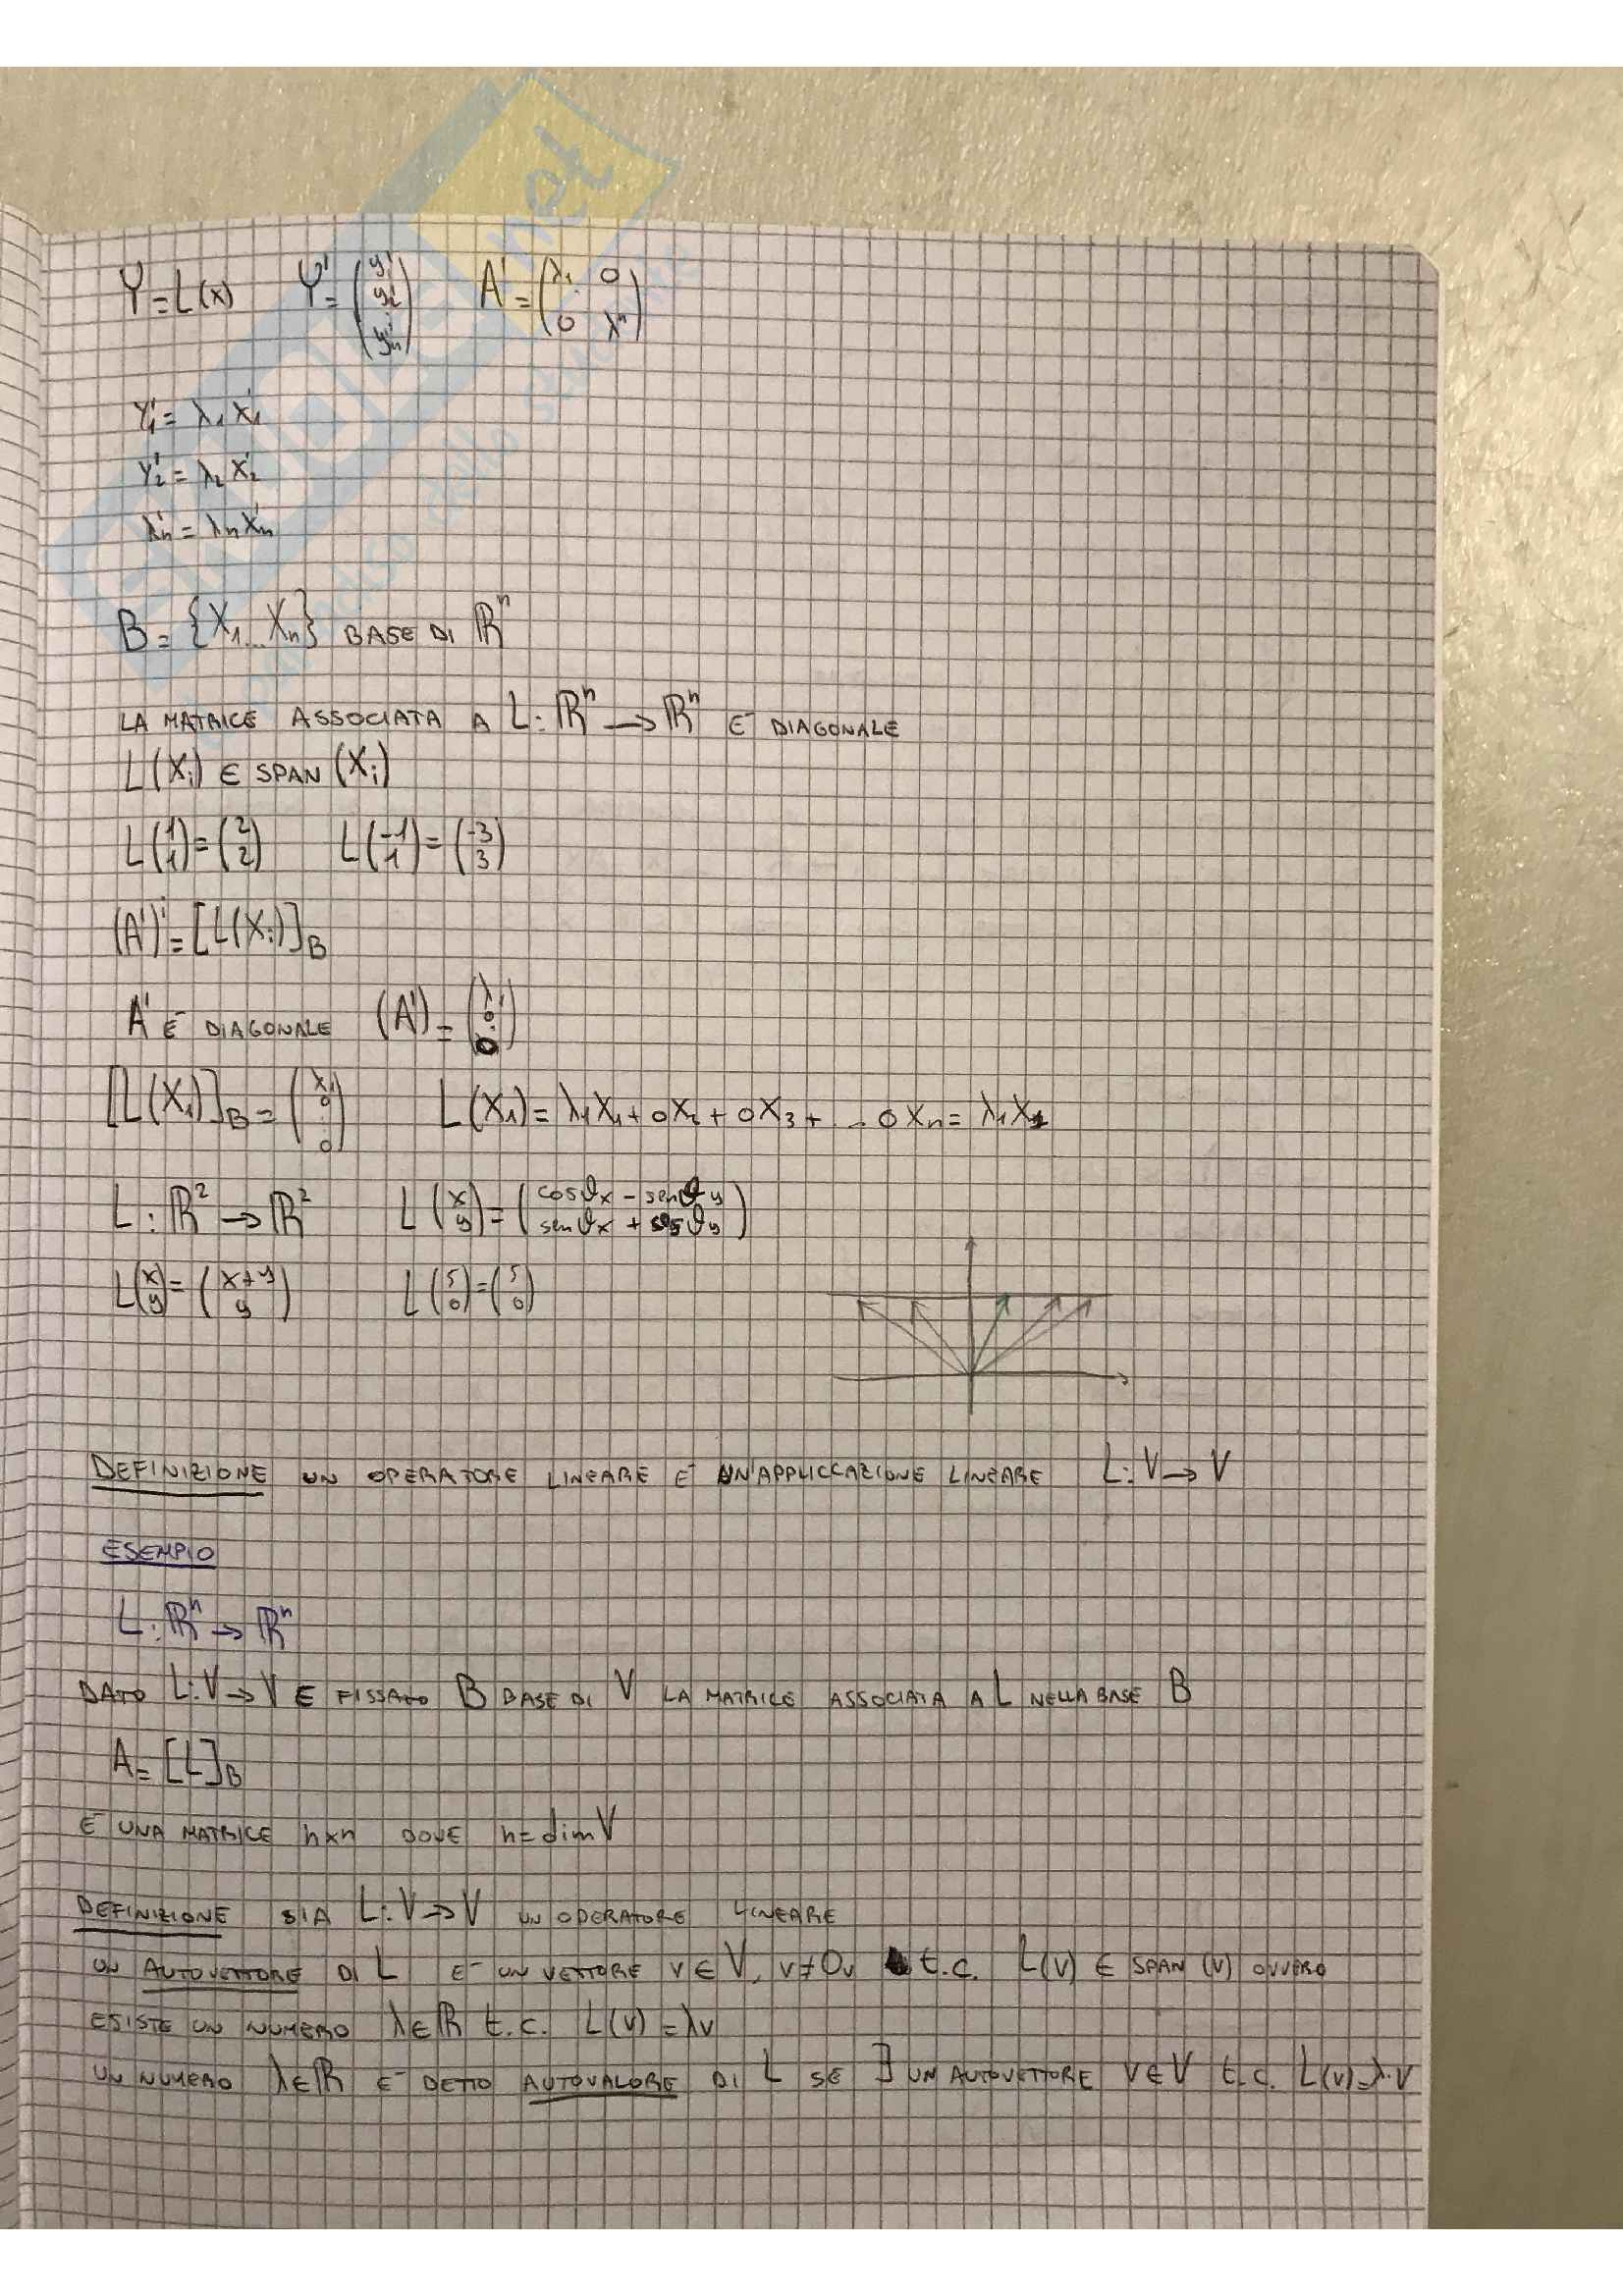 Y = L(x) Y' = (y₁' y₂' ⋮ yₙ') A' = (λ₁ 0 0 λⁿ)
Y₁' = λ₁ X₁'
Y₂' = λ₂ X₂'
λₙ' = λₙ Xₙ'
B = {X₁ ... Xₙ} BASE DI ℝⁿ
LA MATRICE ASSOCIATA A L: ℝⁿ → ℝⁿ E' DIAGONALE
L(Xᵢ) ∈ SPAN (Xᵢ)
L(1 1) = (2 2) L(-1 1) = (-3 3)
(A')ⁱ = [L(Xᵢ)]_B
A' E' DIAGONALE (A') = (λ₁ 0 ⋮ 0)
[L(X₁)]_B = (λ₁ 0 ⋮ 0) L(X₁) = λ₁X₁ + 0X₂ + 0X₃ + ... 0Xₙ = λ₁X₁
L: ℝ² → ℝ² L(x y) = (cosϑx - senϑy senϑx + cosϑy)
L(x y) = (x+y y) L(5 0) = (5 0)
DEFINIZIONE UN OPERATORE LINEARE E' UN'APPLICCAZIONE LINEARE L: V → V
ESEMPIO
L: ℝⁿ → ℝⁿ
DATO L: V → V E FISSATO B BASE DI V LA MATRICE ASSOCIATA A L NELLA BASE B
A = [L]_B
E' UNA MATRICE n×n DOVE n = dim V
DEFINIZIONE SIA L: V → V UN OPERATORE LINEARE
UN AUTOVETTORE DI L E' UN VETTORE v ∈ V, v ≠ 0ᵥ t.c. L(v) ∈ SPAN (v) OVVERO
ESISTE UN NUMERO λ ∈ ℝ t.c. L(v) = λv
UN NUMERO λ ∈ ℝ E' DETTO AUTOVALORE DI L SE ∃ UN AUTOVETTORE v ∈ V t.c. L(v) = λ·v